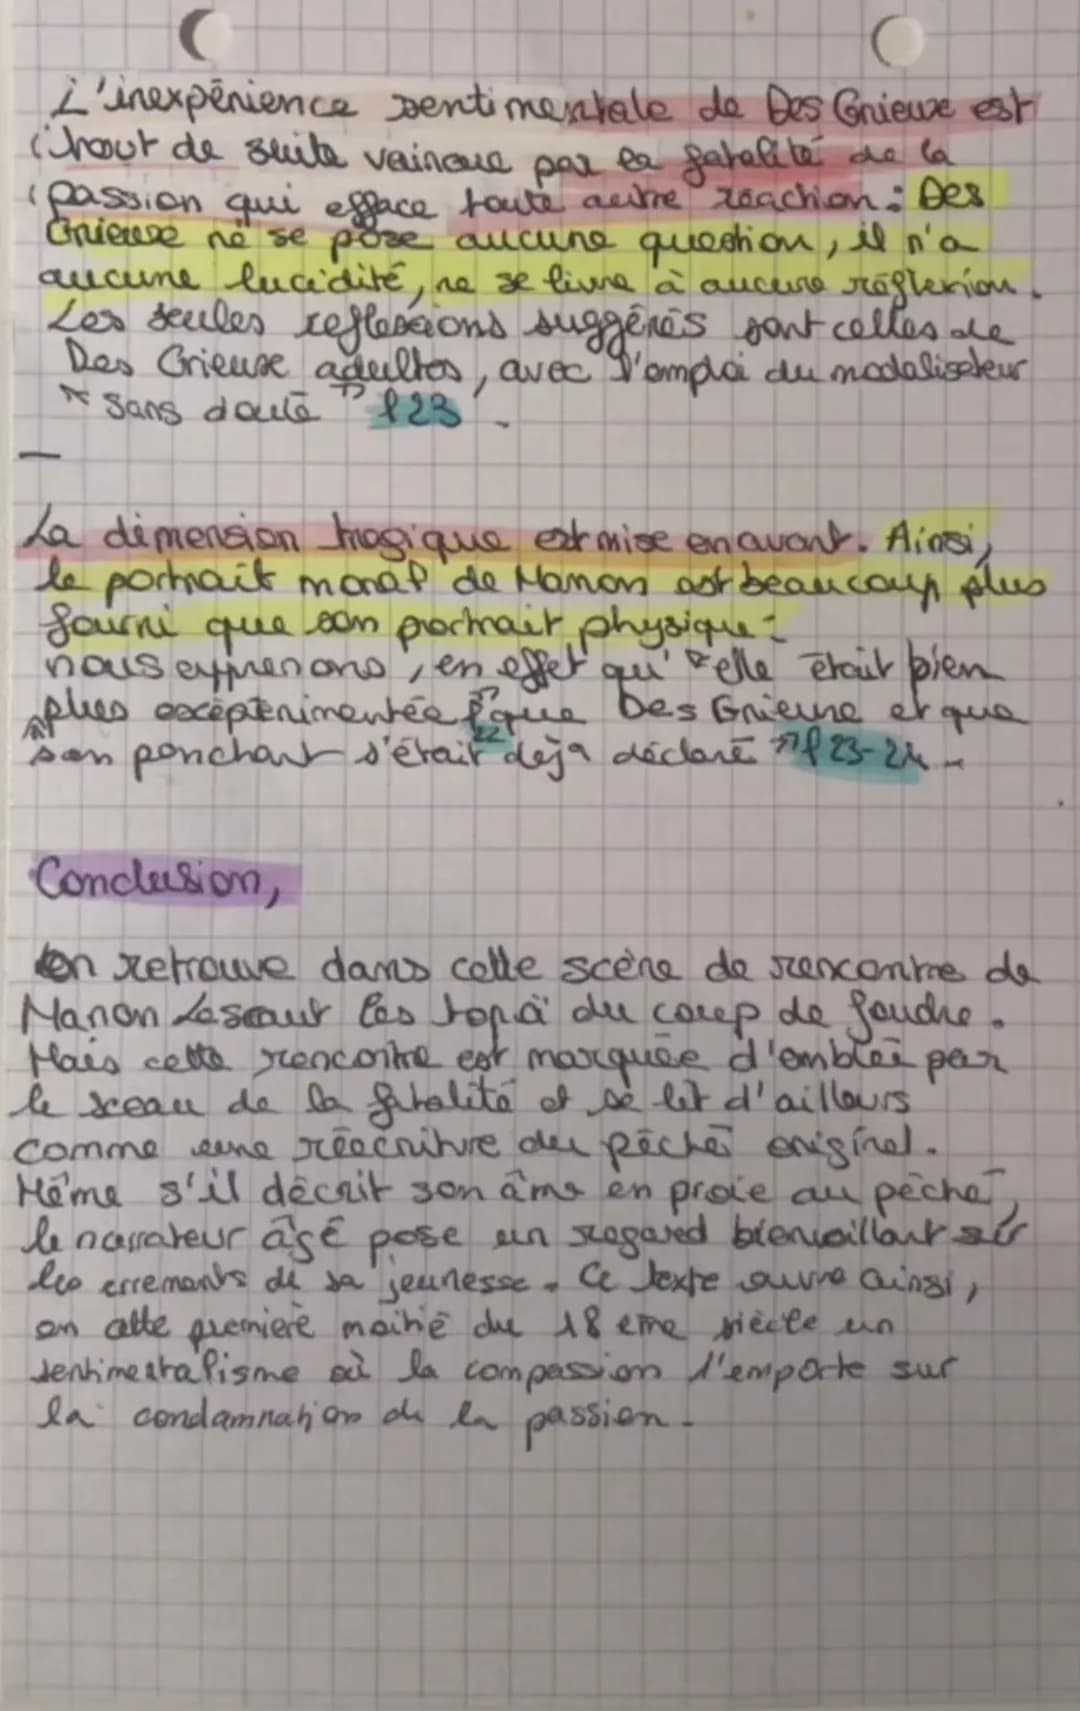 L'inexpérience sentimentale de Des Grieux est
tout de suite vaincue par la fatalité de la
passion qui efface toute autre réaction : Des
Grieux ne se pose aucune question, il n'a
aucune lucidité, ne se livre à aucune réflexion.
Les seules reflexions suggérés sont celles de
Des Grieux adultes, avec l'emploi du modalisateur
"sans doute" l 23.
La dimension tragique est mise en avant. Ainsi,
le portrait moral de Manon est beaucoup plus
fourni que son portrait physique :
nous apprenons, en effet qu' "elle était bien
plus expérimentée" l 22 que Des Grieux et que
"son penchant s'était déjà déclaré" l 23-24.
Conclusion,
on retrouve dans cette scène de rencontre de
Manon Lescaut les topoï du coup de foudre.
Mais cette rencontre est marquée d'emblée par
le sceau de la fatalité et se lit d'ailleurs
comme une réécriture du péché originel.
Même s'il décrit son âme en proie au péché,
le narrateur âgé pose un regard bienveillant sur
les errements de sa jeunesse. Ce texte ouvre ainsi,
en cette première moitié du 18 eme siècle un
sentimentalisme où la compassion l'emporte sur
la condamnation de la passion.